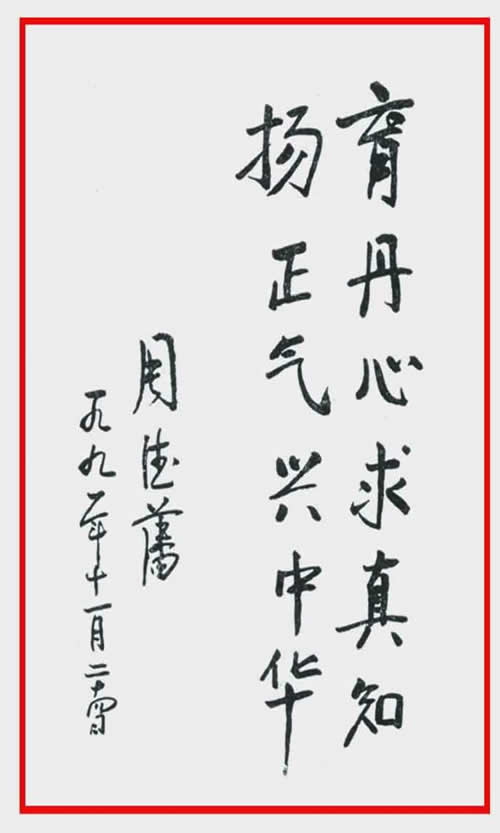 育丹心求真知
扬正气兴中华
周德藩
一九九 年十一月二十 日